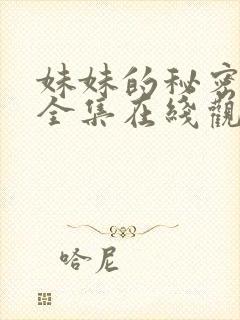 妹妹的秘密
全集在綫觀
哈尼